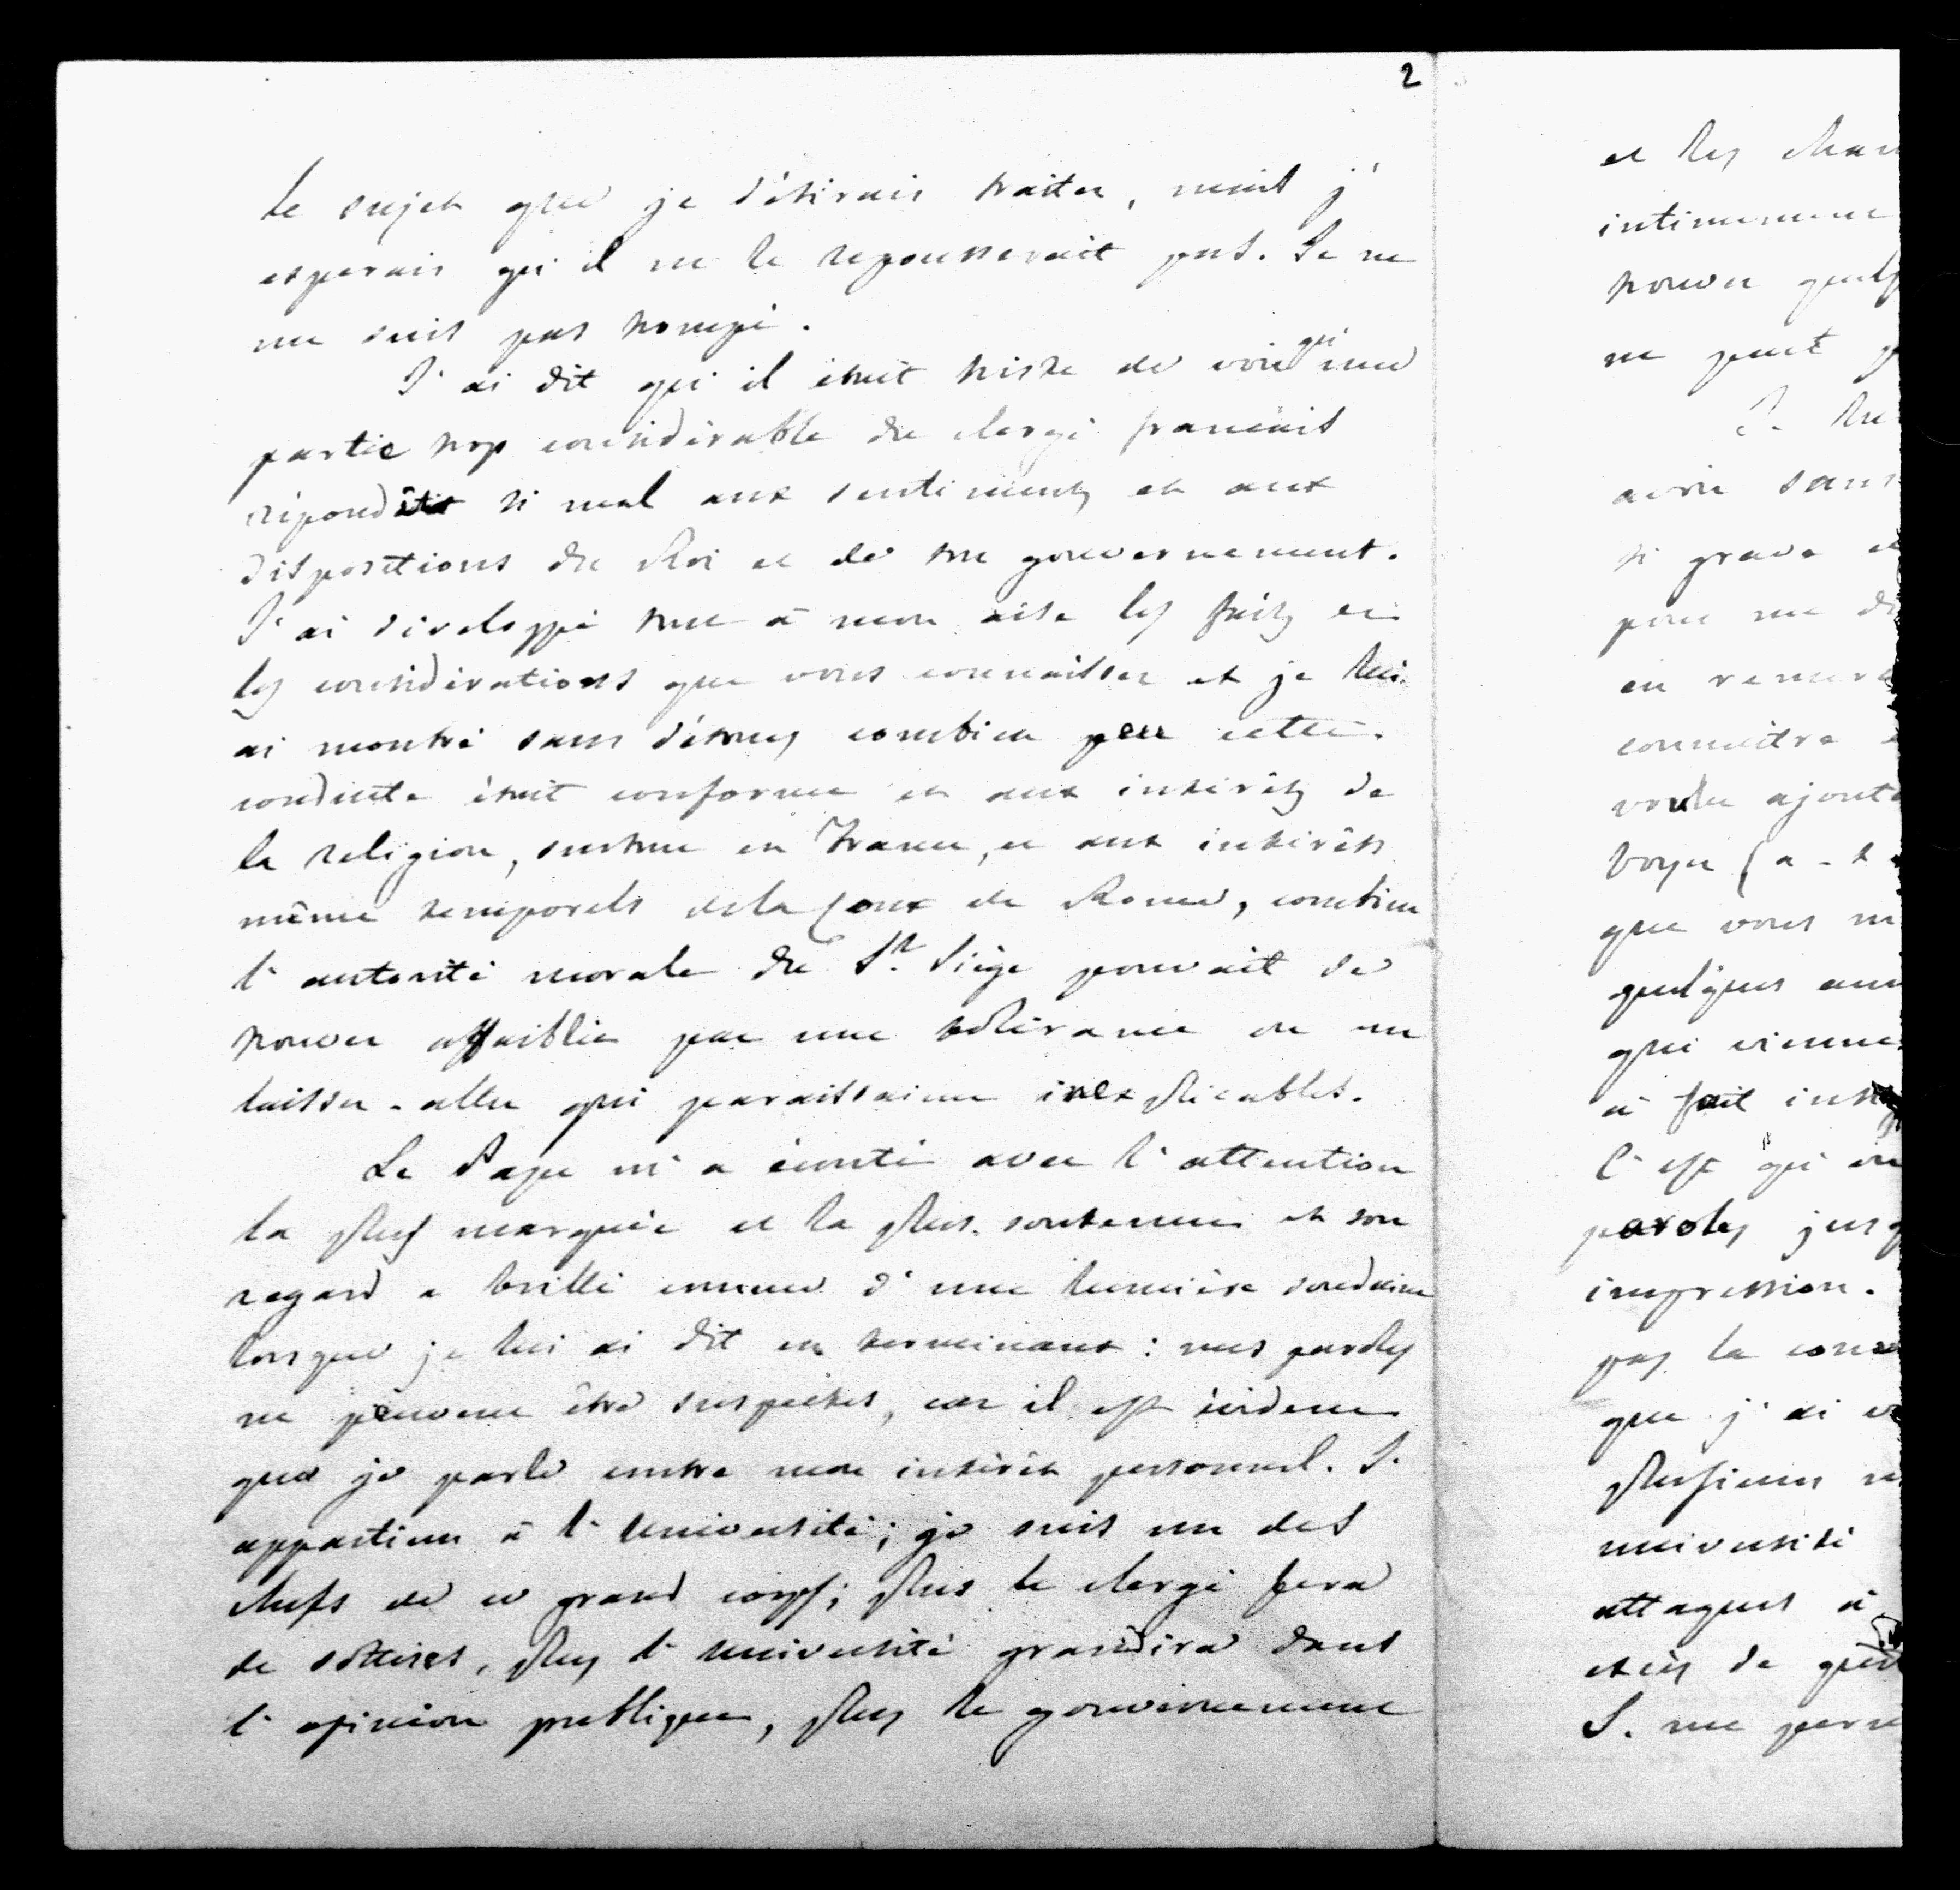 2
le sujet que je désirais traiter, mais j'
esperais qu'il ne le repousserait pas. Je ne
me suis pas trompé.
J'ai dit qu'il était triste de voir qu'une
partie trop considérable du clergé français
répondît si mal aux sentiments et aux
dispositions du Roi et de son gouvernement.
J'ai développé tout à mon aise les faits et
les considérations que vous connaissez et je lui
ai montré sans détours combien peu cette
conduite était conforme et aux intérêts de
la religion, surtout en France, et aux intérêts
même temporels de la Cour de Rome, combien
l'autorité morale du St. Siège pouvait se
trouver affaiblie par une tolérance ou un
laisser-aller qui paraissaient inexplicables.
Le Pape m'a écouté avec l'attention
la plus marquée et la plus soutenue et son
regard a brillé comme d'une lumière soudaine
lorsque je lui ai dit en terminant : mes paroles
ne peuvent être suspectes, car il est évident
que je parle contre mon intérêt personnel. J'
appartiens à l'Université; je suis un des
chefs de ce grand corps; plus le clergé fera
de sottises, plus l'université grandira dans
l'opinion publique, plus le gouvernement
et les
intimement
trouver
ne peut
avoir sans
si grave et
pour me
en
connaître
voulu
que vous
quelques
qui
à fait
C'est qu'
paroles
impression.
pas la
que j'ai
plusieurs
université
attaques à
excès de
S. me